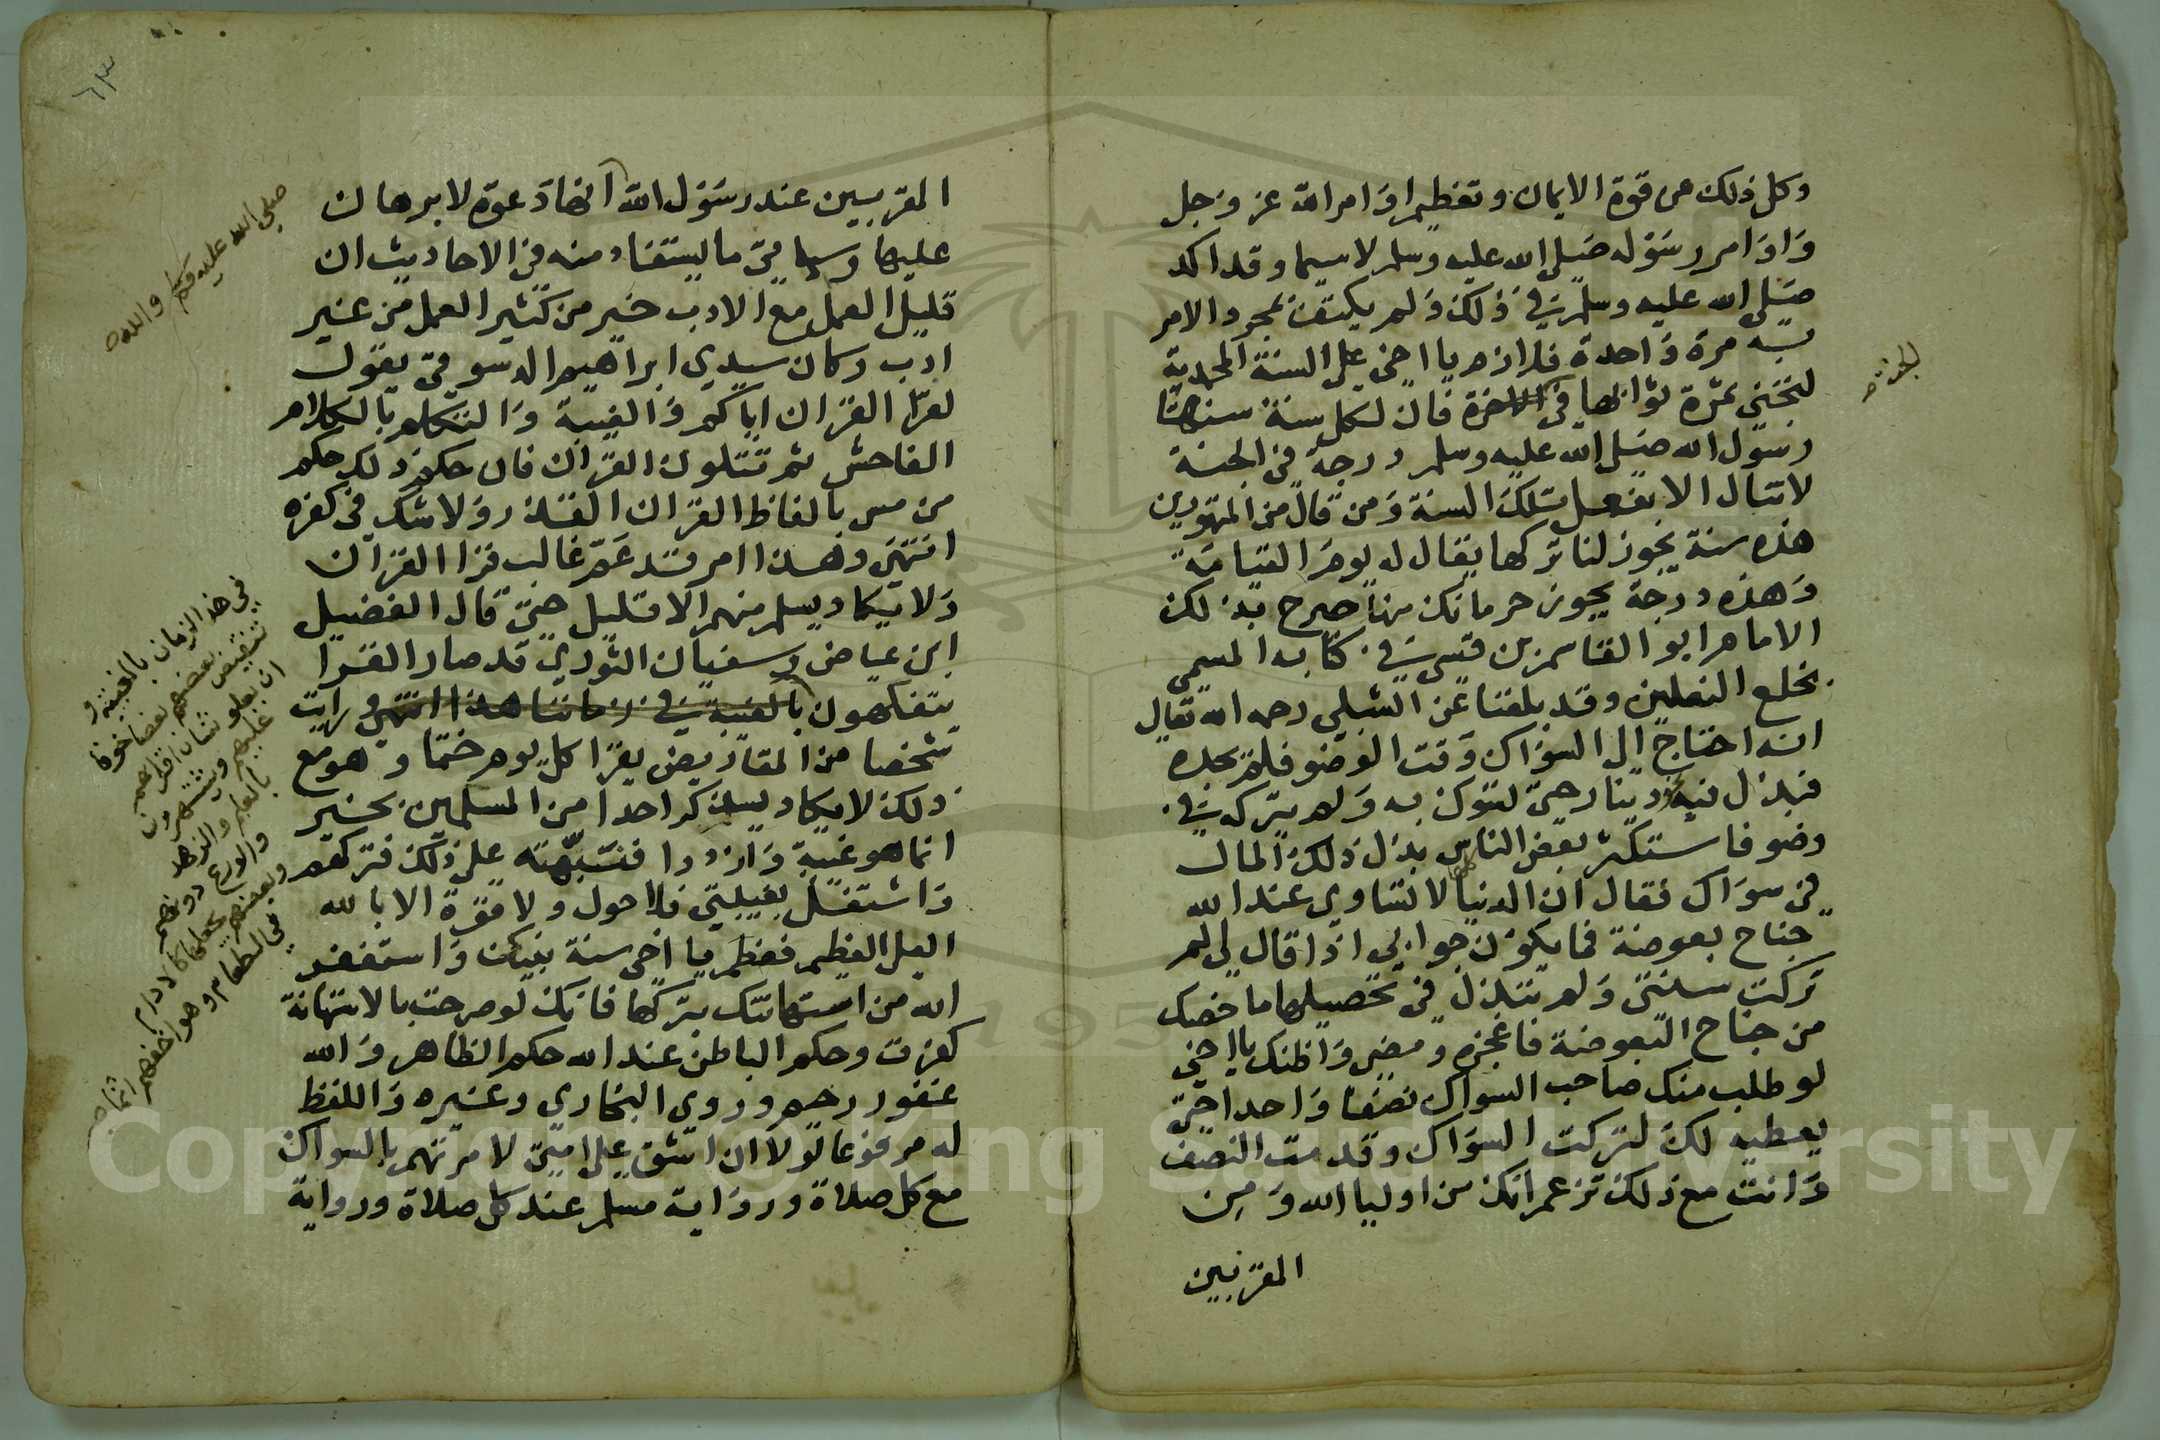 وكل ذلك من قوة الايمان وتعظيم اوامر الله عز وجل
واوامر رسوله صلى الله عليه وسلم لاسيما وقد اكد
صلى الله عليه وسلم في ذلك ولم يكتف بمجرد الامر
به مرة واحدة فلازم يا اخي على السنة المحمدية
لتجني ثمرة ثوابها في الاخرة فان لكل سنة سنها
رسول الله صلى الله عليه وسلم درجة في الجنة
لا تنال الا بفعل تلك السنة ومن قال من المتهورين
هذه سنة يجوز لنا تركها يقال له يوم القيامة
وهذه درجة يجوز حرمانك منها صرح بذلك
الامام ابو القاسم بن قسي في كتابه المسمى
بخلع النعلين وقد بلغنا عن الشبلي رحمه الله تعالى
انه احتاج الى السواك وقت الوضو فلم يجده
فبذل فيه نحو دينار حتى تسوك به ولم يتركه في
وضو فاستكثر بعض الناس بذل ذلك المال
في سواك فقال ان الدنيا كلها لا تساوي عند الله
جناح بعوضة فما يكون جوابي اذا قال لي لم
تركت سنتي ولم تبذل في تحصيلها ما خصك
من جناح البعوضة فاعجزه ومضى واظنك يا اخي
لو طلب منك صاحب السواك نصفا واحدا حتى
يعطيه لك لتركت السواك وقدمت النصف
وانت مع ذلك تزعم انك من اوليا الله ومن
المقربين
٦٣
المقربين عند رسول الله انها دعوة لا برهان
صلى الله عليه وسلم والله
عليها وسياتي ما يستفاد منه في الاحاديث ان
قليل العمل مع الادب خير من كثير العمل من غير
ادب وكان سيدي ابراهيم الدسوقي يقول
لقرا القران اياكم والغيبة والتكلم بالكلام
الفاحش ثم تتلون القران فان حكم ذلك حكم
من مس بالفاظ القران القذر ولا شك في كفره
انتهى وهذا امر قد عم غالب قرا القران
ولا يكاد يسلم منهم الا قليل حتى قال الفضيل
ابن عياض وسفيان الثوري قد صار القرا
يتفكهون بالغيبة في زماننا هذا انتهى ورايت
شخصا من المقاريض يقرا كل يوم ختما وهو مع
ذلك لا يكاد يذكر احدا من المسلمين بخير
انما هو غيبة وازدرا فنبهته على ذلك فتركهم
واشتغل بغيبتي فلا حول ولا قوة الا بالله
العلي العظيم فعظم يا اخي سنة نبيك واستغفر
الله من استهانتك بتركها فانك لو صرحت بالاستهانة
كفرت وحكم الباطن عند الله حكم الظاهر والله
غفور رحيم وروى البخاري وغيره واللفظ
له مرفوعا لولا ان اشق على امتي لامرتهم بالسواك
مع كل صلاة ورواية مسلم عند كل صلاة ورواية
في هذا الزمان بالغيبة و
تنقيص بعضهم بعضا خوفا
ان يعلو شان اقرانهم
عليهم ويشتهرون
بالعلم والزهد
والورع دونهم
وبعضهم يجعلها كالادام
في الطعام وهو اخفهم اثما